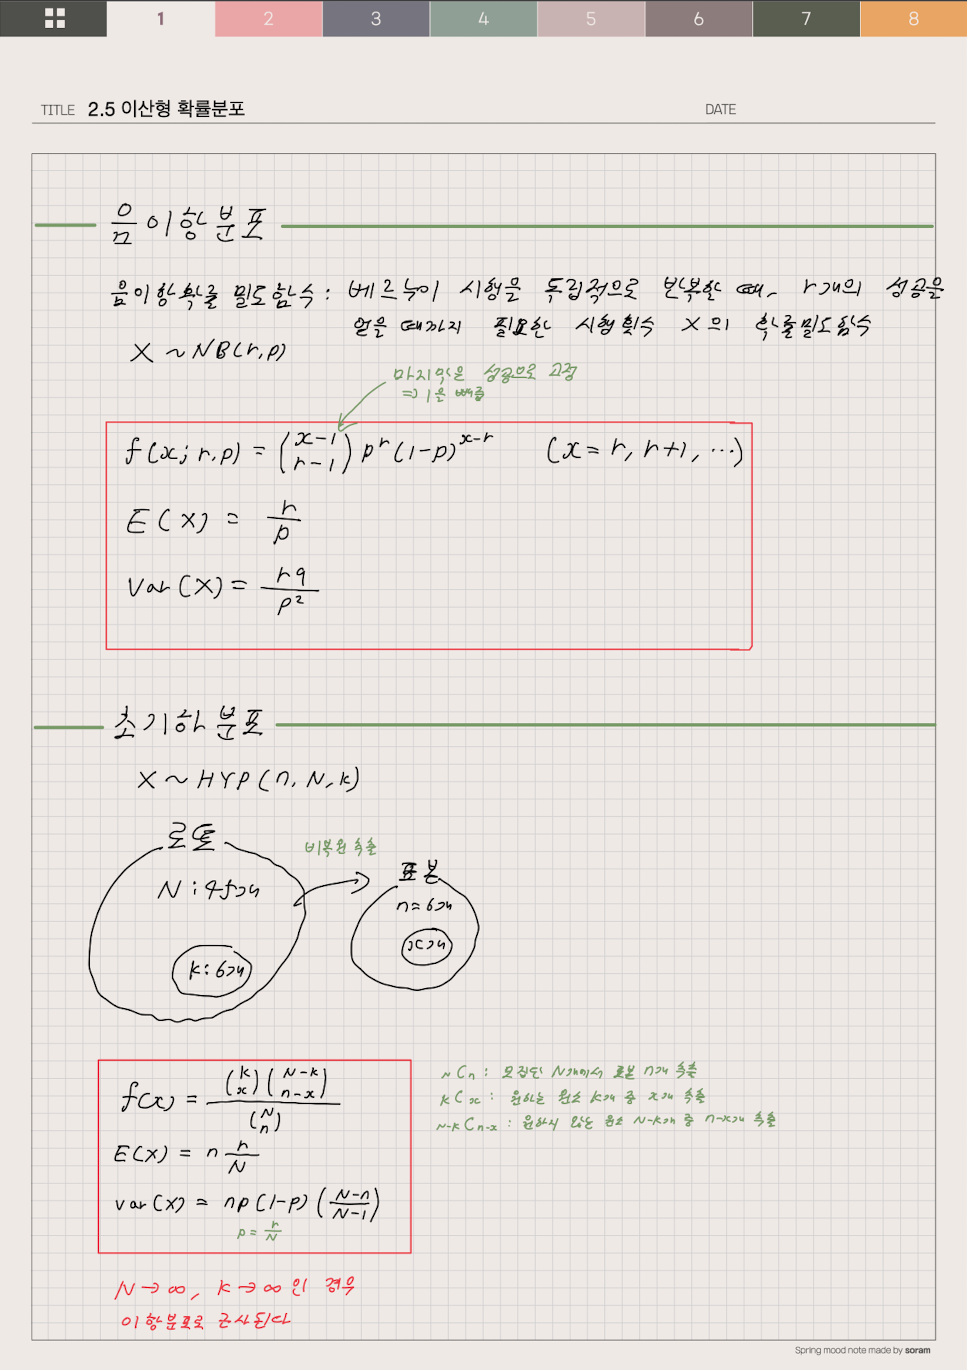 1 2 3 4 5 6 7 8
TITLE 2.5 이산형 확률분포 DATE
음이항분포
음이항확률 밀도함수 : 베르누이 시험을 독립적으로 반복할 때, r개의 성공을
얻을 때까지 필요한 시험횟수 X의 확률밀도함수
X ~ NB(r, p)
마지막은 성공으로 고정
=> 1을 빼줌
f(x; r, p) = (x-1 r-1) p^r (1-p)^x-r (x = r, r+1, ...)
E(X) = r/p
Var(X) = rq/p²
초기하분포
X ~ HYP(n, N, k)
로또
비복원 추출
표본
N : 45개
n = 6개
x개
k : 6개
f(x) = (k x)(N-k n-x) / (N n)
NCn : 모집단 N개에서 표본 n개 추출
kCx : 원하는 원소 k개 중 x개 추출
N-kCn-x : 원하지 않는 원소 N-k개 중 n-x개 추출
E(X) = n r/N
var(X) = np(1-p)(N-n/N-1)
p = r/N
N → ∞, k → ∞ 인 경우
이항분포로 근사된다
Spring mood note made by soram